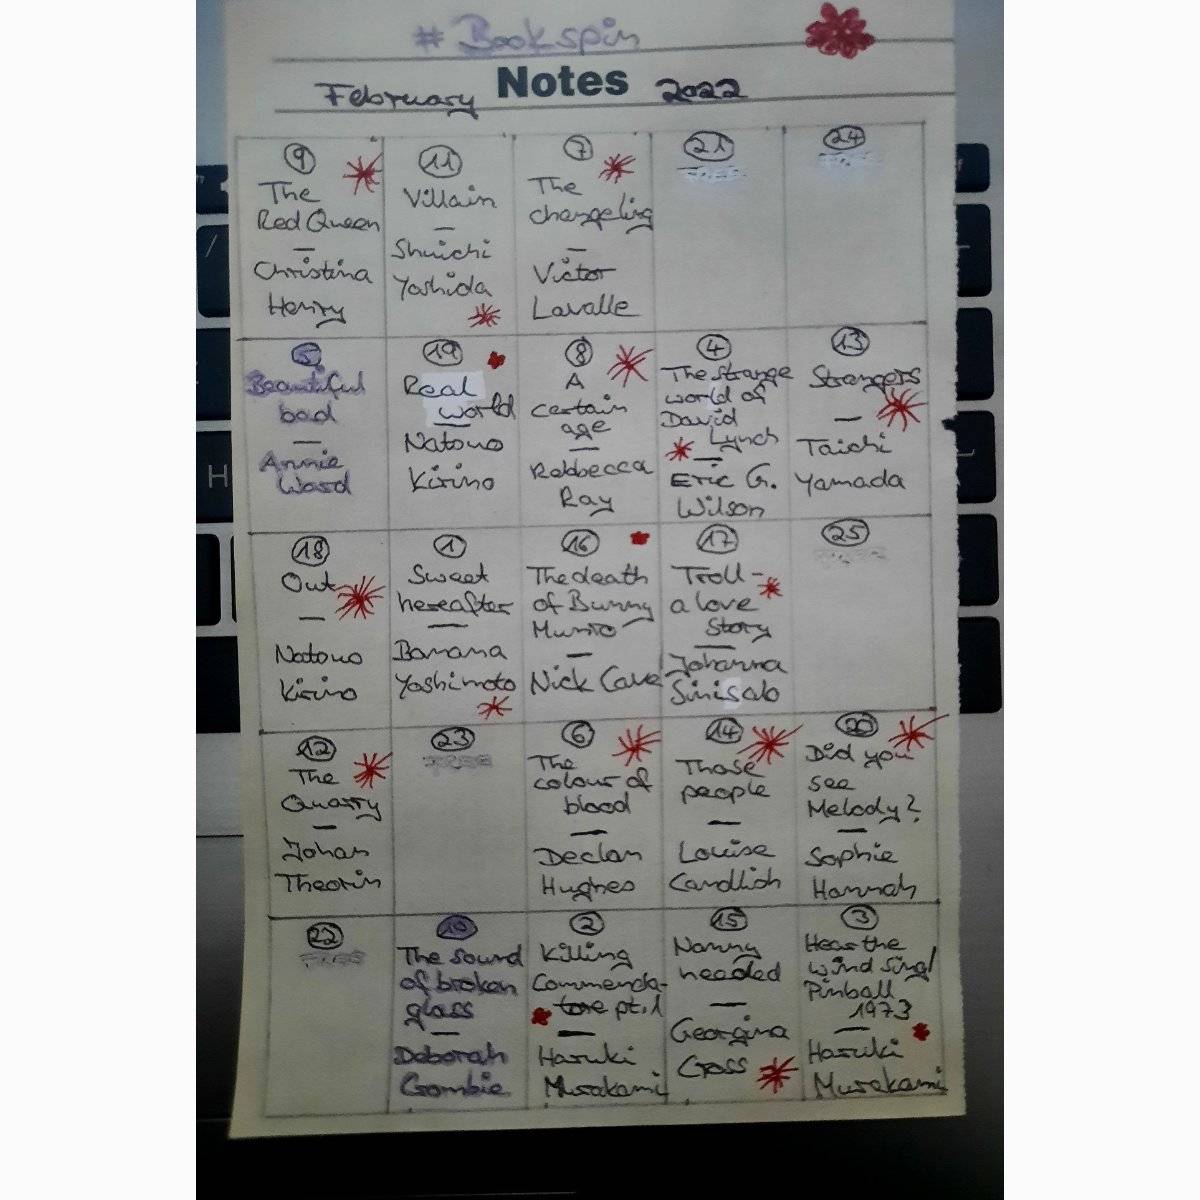 # Bookspin
Notes
February 2022
9
The
Red Queen
—
Christina
Henry
11
Villain
—
Shuichi
Yoshida
7
The
changeling
—
Victor
Lavalle
21
FREE
24
FREE
5
Beautiful
bad
—
Annie
Ward
19
Real
world
—
Natsuo
Kirino
8
A
certain
age
—
Rebbecca
Ray
4
The strange
world of
David
Lynch
—
Eric G.
Wilson
13
Strangers
—
Taichi
Yamada
18
Out
—
Natsuo
Kirino
1
Sweet
hereafter
—
Banana
Yoshimoto
16
The death
of Bunny
Munro
—
Nick Cave
17
Troll -
a love
story
—
Johanna
Sinisalo
25
12
The
Quarry
—
Johan
Theorin
23
FREE
6
The
colour of
blood
—
Declan
Hughes
14
Those
people
—
Louise
Candlish
20
Did you
see
Melody?
—
Sophie
Hannah
22
FREE
10
The sound
of broken
glass
—
Deborah
Crombie
2
Killing
Commenda-
tore pt.1
—
Haruki
Murakami
15
Nanny
needed
—
Georgina
Cross
3
Hear the
wind sing/
Pinball
1973
—
Haruki
Murakami